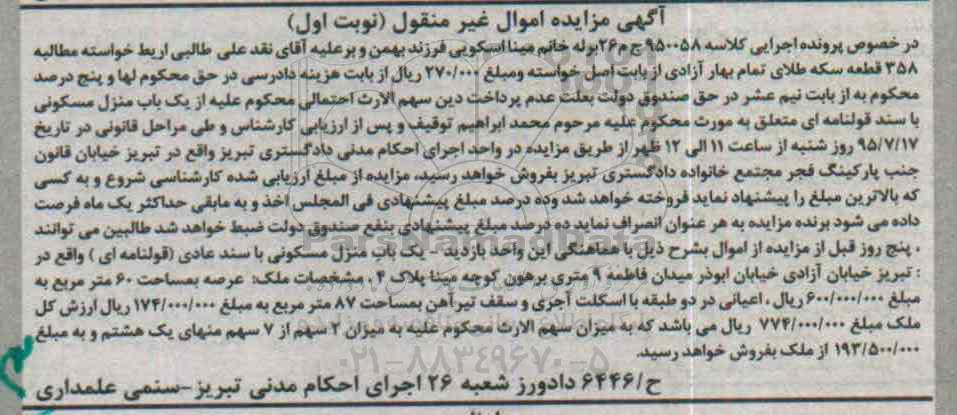 آگهی مزایده اموال غیر منقول (نوبت اول)
در خصوص پرونده اجرایی کلاسه ۹۵۰۰۵۸ ج م۲۶ برله خانم مینا اسکویی فرزند بهمن و برعلیه آقای نقد علی طالبی اربط خواسته مطالبه
۳۵۸ قطعه سکه طلای تمام بهار آزادی از بابت اصل خواسته ومبلغ ۲۷۰/۰۰۰ ریال از بابت هزینه دادرسی در حق محکوم لها و پنج درصد
محکوم به از بابت نیم عشر در حق صندوق دولت بعلت عدم پرداخت دین سهم الارث احتمالی محکوم علیه از یک باب منزل مسکونی
با سند قولنامه ای متعلق به مورث محکوم علیه مرحوم محمد ابراهیم توقیف و پس از ارزیابی کارشناس و طی مراحل قانونی در تاریخ
۹۵/۷/۱۷ روز شنبه از ساعت ۱۱ الی ۱۲ ظهر از طریق مزایده در واحد اجرای احکام مدنی دادگستری تبریز واقع در تبریز خیابان قانون
جنب پارکینگ فجر مجتمع خانواده دادگستری تبریز بفروش خواهد رسید، مزایده از مبلغ ارزیابی شده کارشناسی شروع و به کسی
که بالاترین مبلغ را پیشنهاد نماید فروخته خواهد شد وده درصد مبلغ پیشنهادی فی المجلس اخذ و به مابقی حداکثر یک ماه فرصت
داده می شود برنده مزایده به هر عنوان انصراف نماید ده درصد مبلغ پیشنهادی بنفع صندوق دولت ضبط خواهد شد طالبین می توانند
، پنج روز قبل از مزایده از اموال بشرح ذیل با هماهنگی این واحد بازدید - یک باب منزل مسکونی با سند عادی (قولنامه ای ) واقع در
: تبریز خیابان آزادی خیابان ابوذر میدان فاطمه ۹ متری برهون کوچه مینا پلاک ۴ ، مشخصات ملک: عرصه بمساحت ۶۰ متر مربع به
مبلغ ۶۰۰/۰۰۰/۰۰۰ ریال ، اعیانی در دو طبقه با اسکلت آجری و سقف تیرآهن بمساحت ۸۷ متر مربع به مبلغ ۱۷۴/۰۰۰/۰۰۰ ریال ارزش کل
ملک مبلغ ۷۷۴/۰۰۰/۰۰۰ ریال می باشد که به میزان سهم الارث محکوم علیه به میزان ۲ سهم از ۷ سهم منهای یک هشتم و به مبلغ
۱۹۳/۵۰۰/۰۰۰ از ملک بفروش خواهد رسید.
ح/۶۴۴۶ دادورز شعبه ۲۶ اجرای احکام مدنی تبریز-سنمی علمداری
ParsNamadData
۰۲۱-۸۸۳۴۹۶۷۰-۵